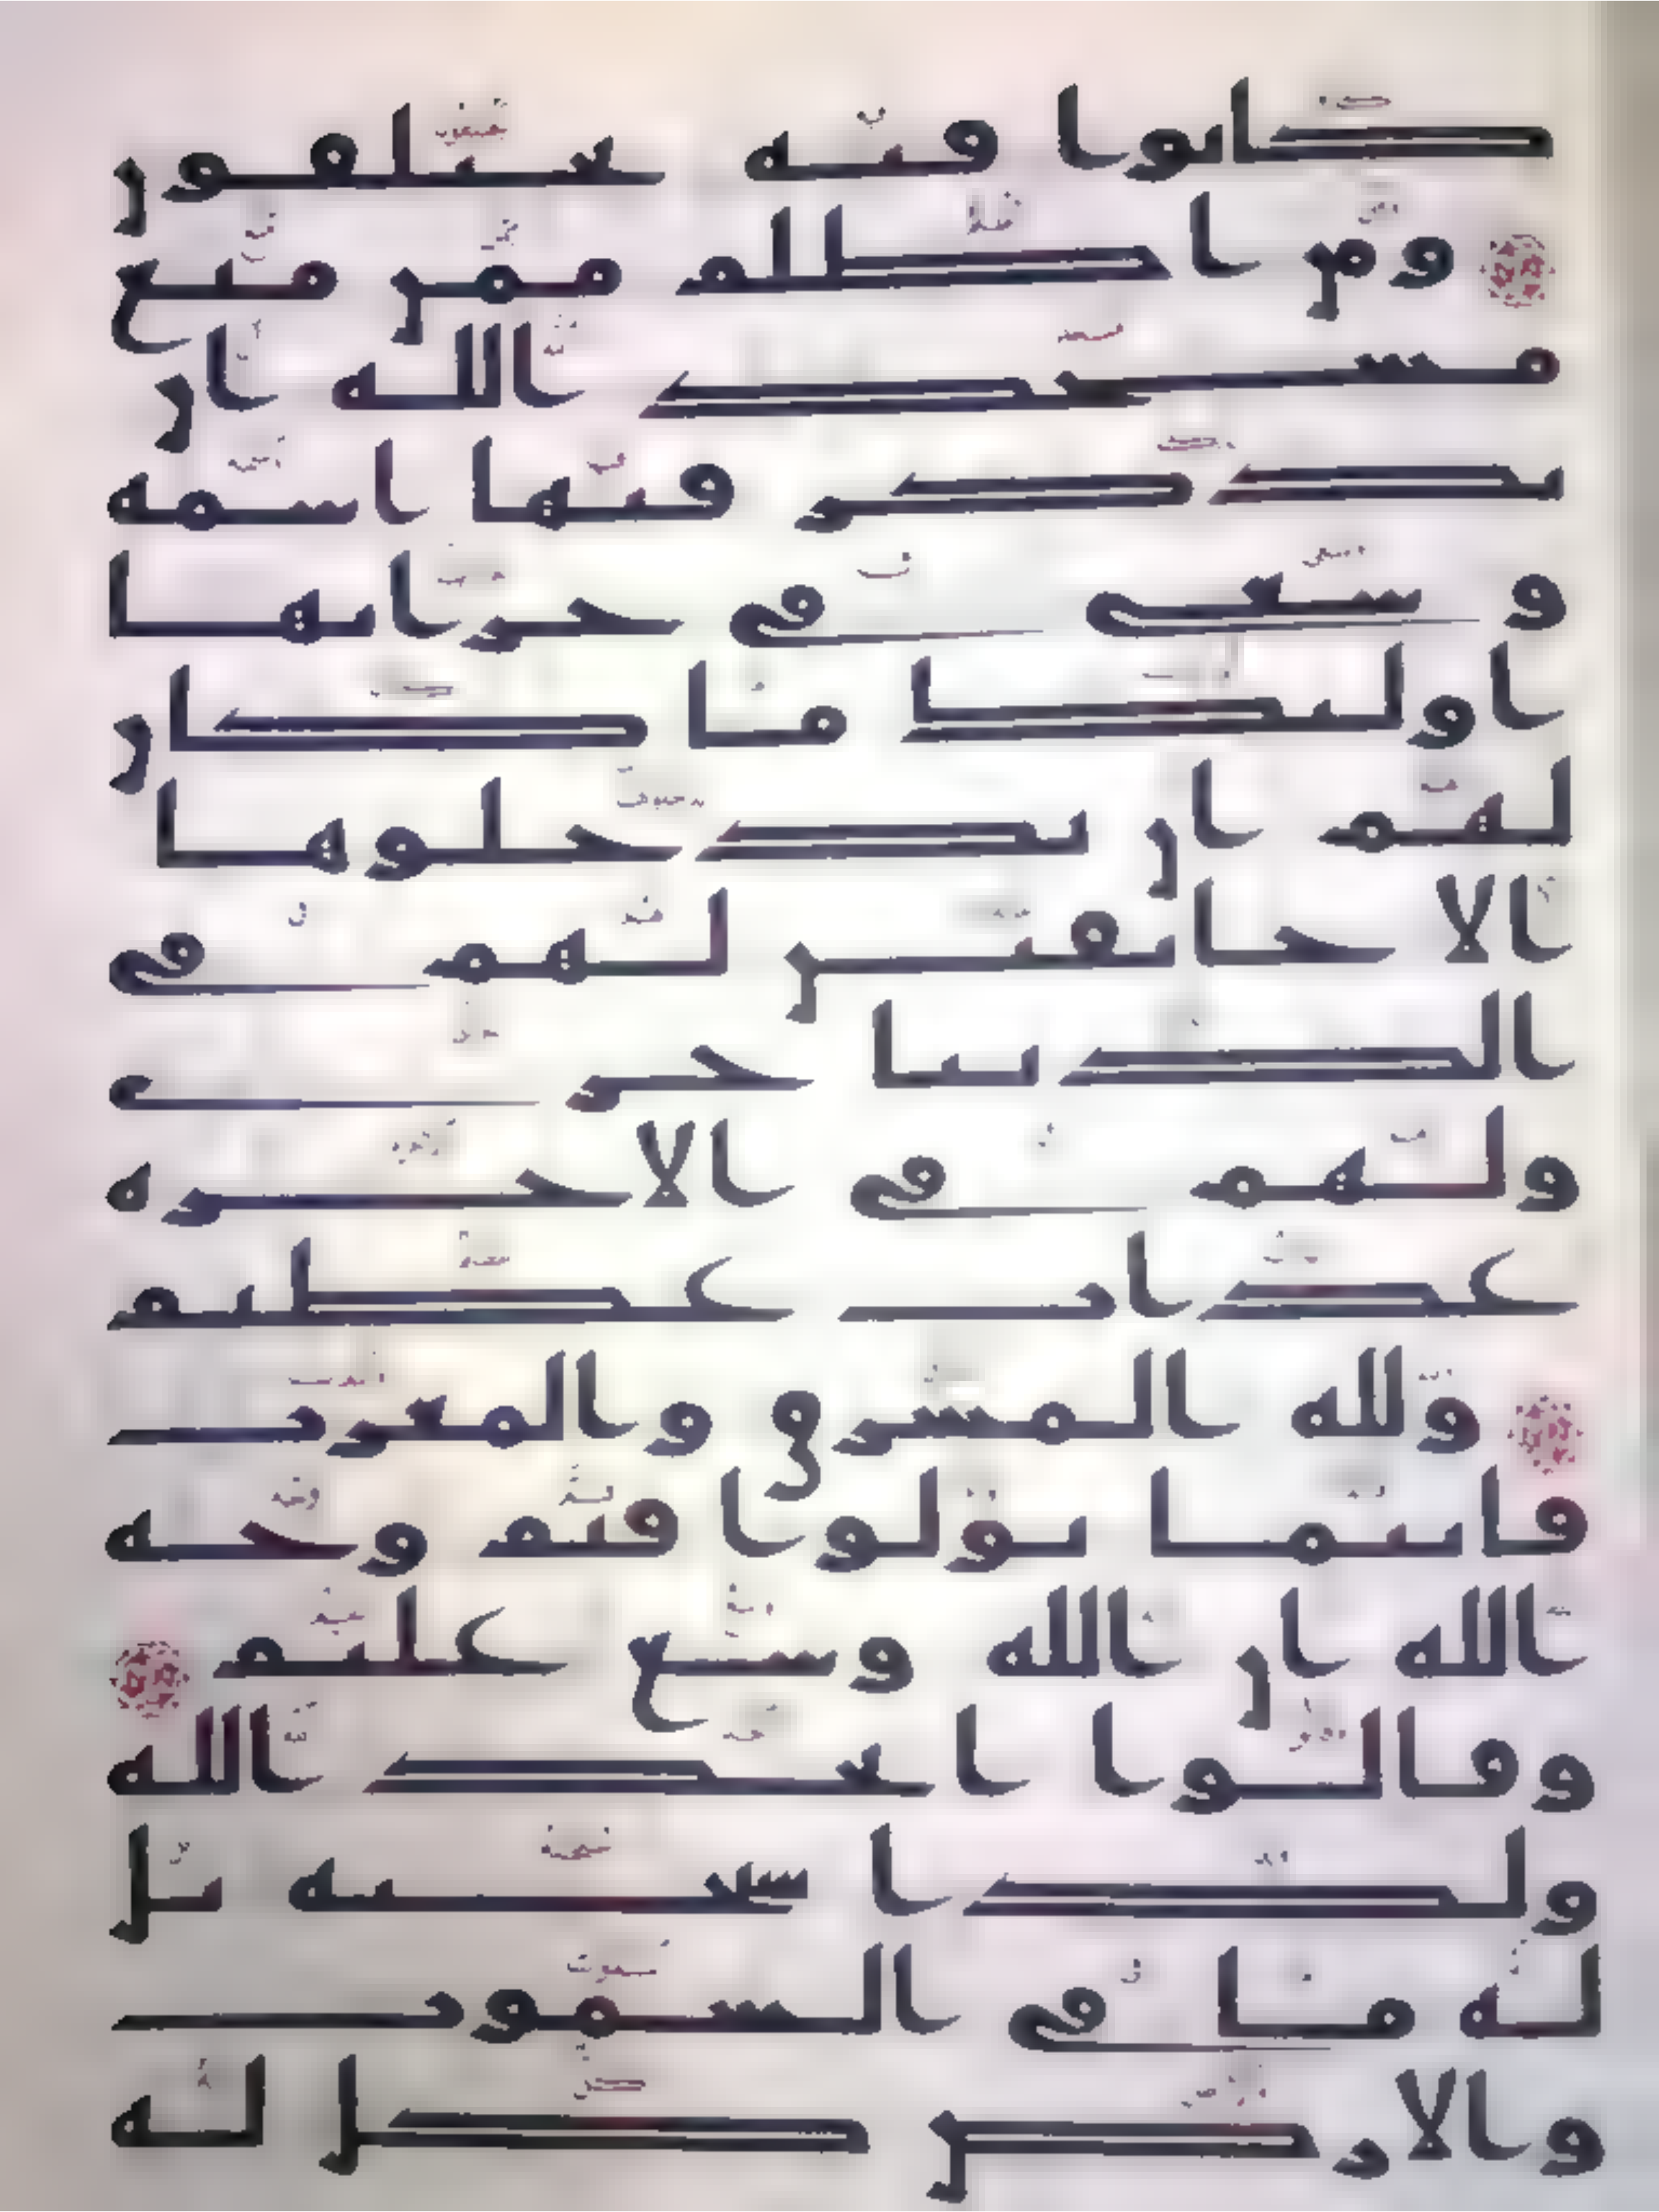 كانوا فيه يختلفون
ومن اظلم ممن منع
مسجد الله ان
يذكر فيها اسمه
وسعى في خرابها
اولئك ما كان
لهم ان يدخلوها
الا خائفين لهم في
الدنيا خزي
ولهم في الاخرة
عذاب عظيم
ولله المشرق والمغرب
فاينما تولوا فثم وجه
الله ان الله وسع عليم
وقالوا اتخذ الله
ولدا سبحنه بل
له ما في السموت
والارض كل له